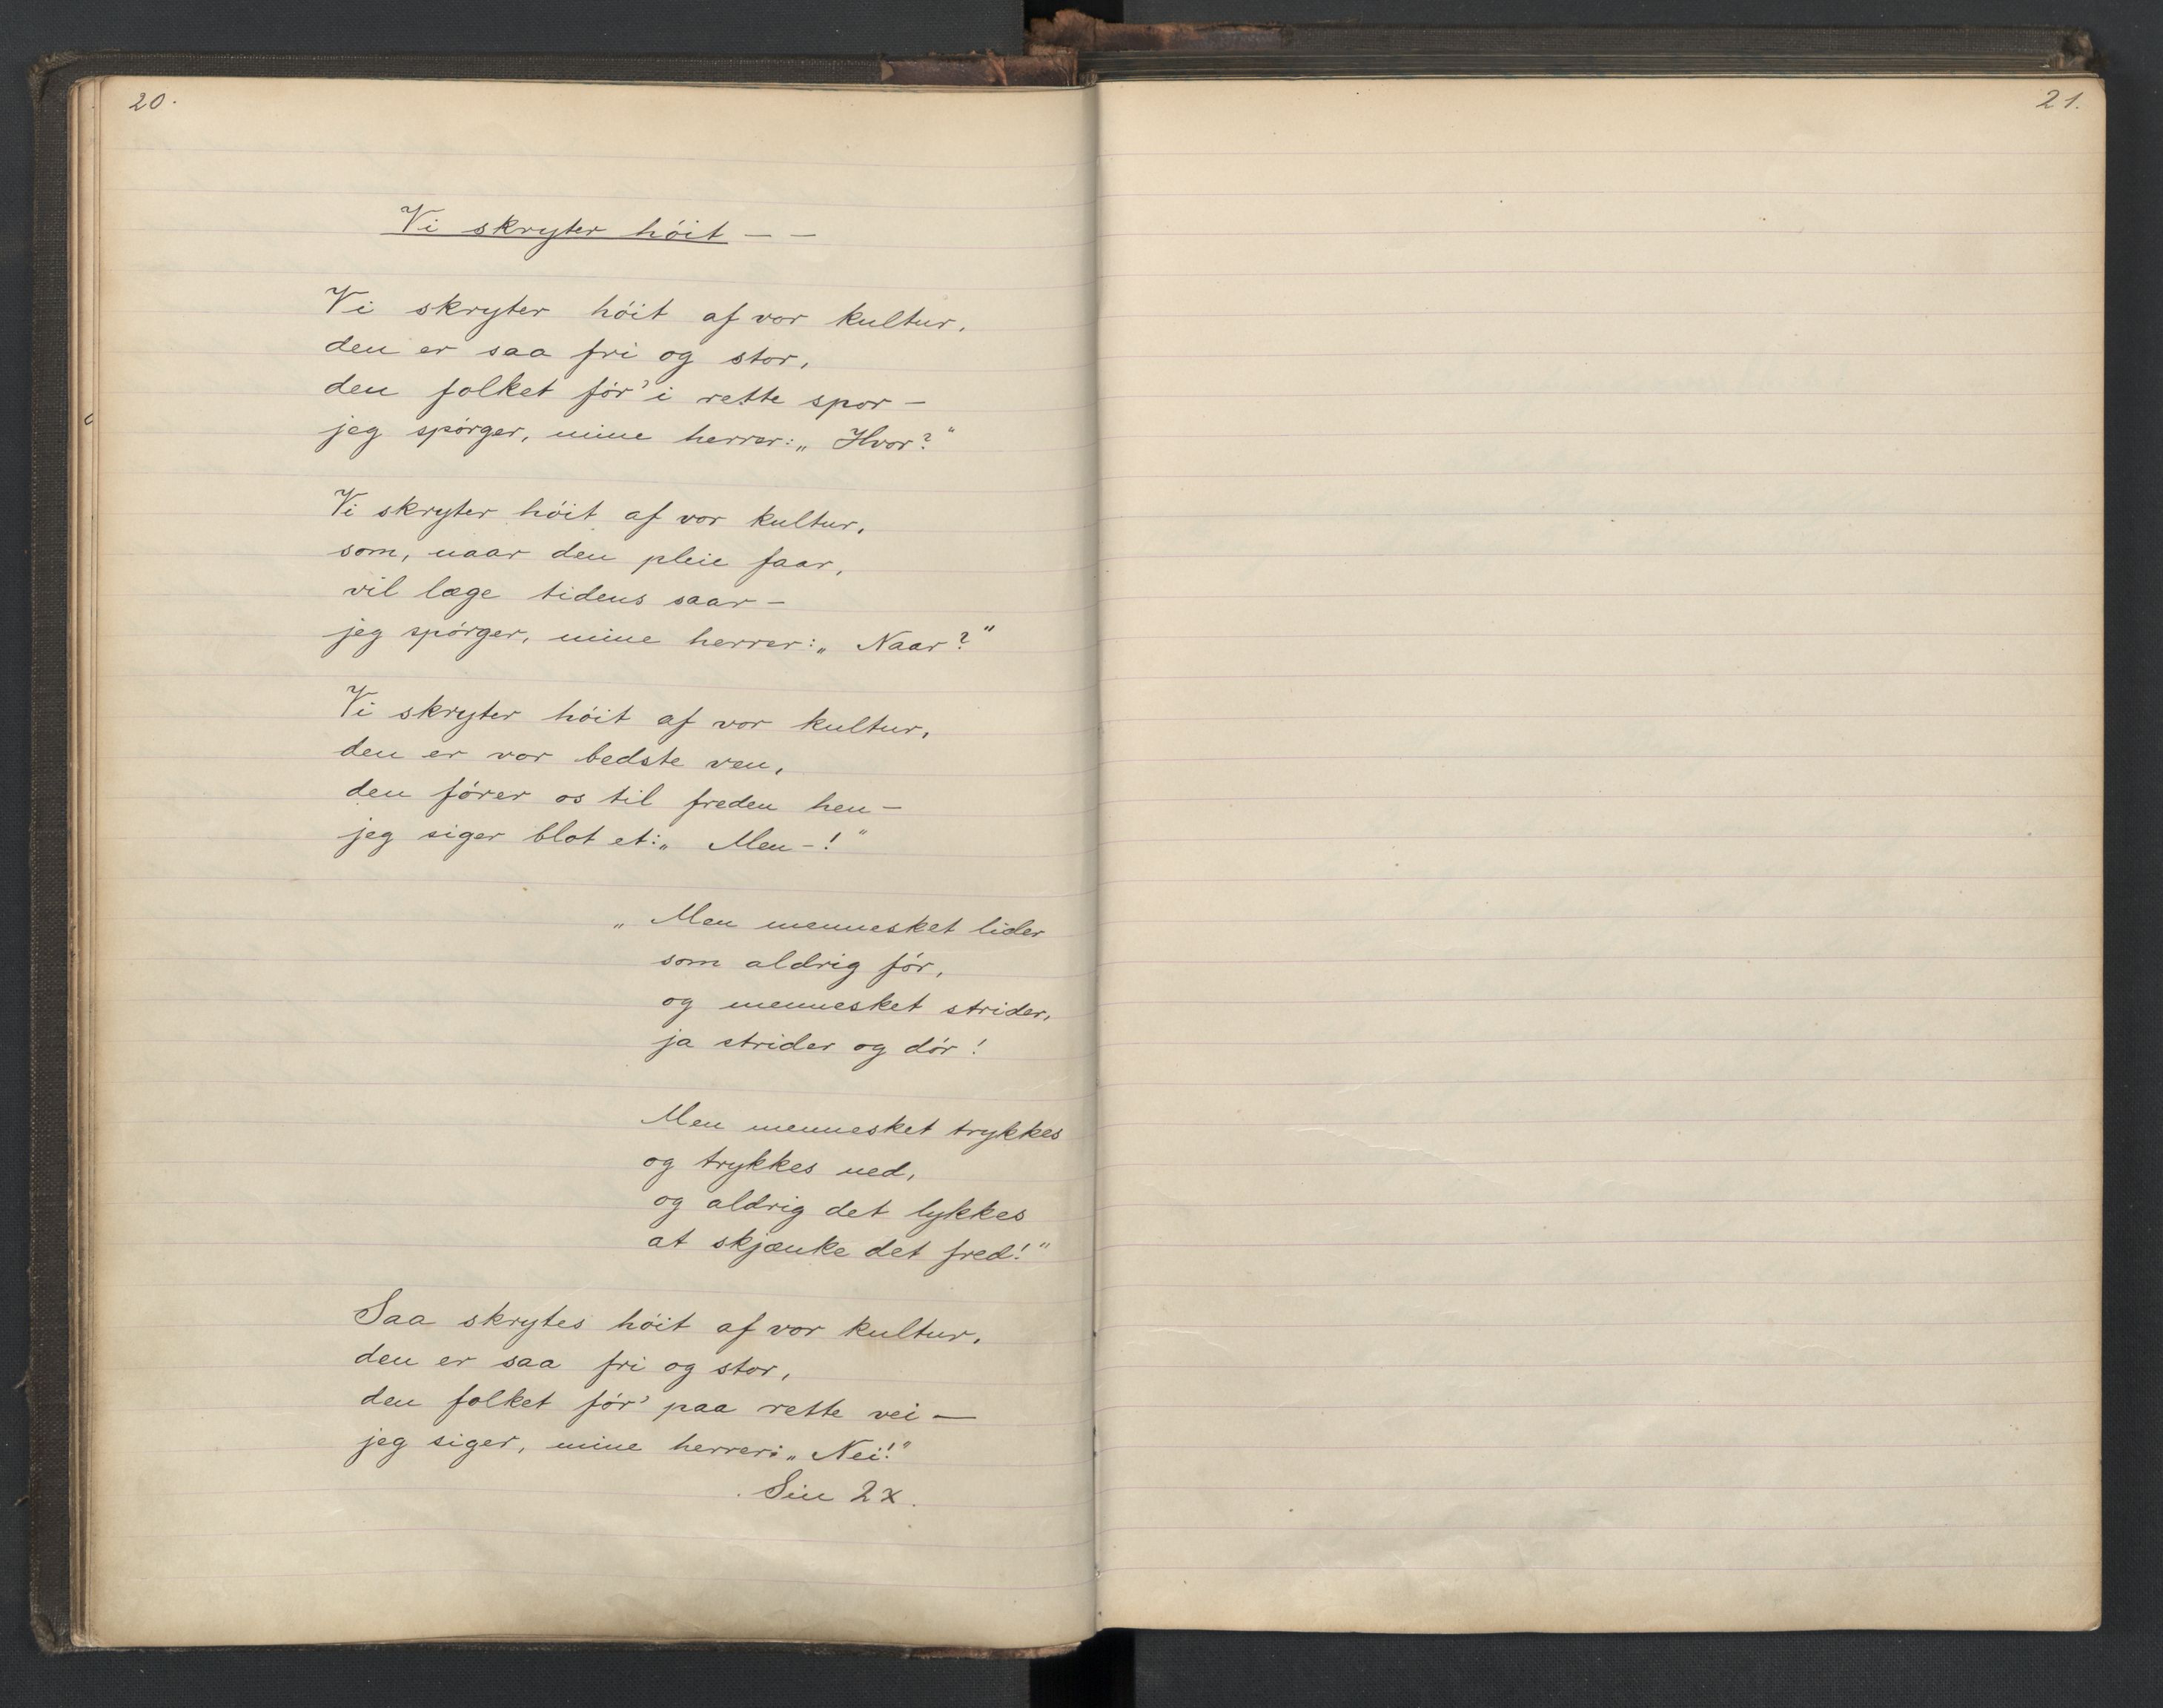 20.
Vi skryter höit – –
Vi skryter höit af vor kultur,
den er saa fri og stor,
den folket för' i rette spor –
jeg spörger, mine herrer: „Hvor?"
Vi skryter höit af vor kultur,
som, naar den pleie faar,
vil læge tidens saar –
jeg spörger, mine herrer: „Naar?"
Vi skryter höit af vor kultur,
den er vor bedste ven,
den förer os til freden hen –
jeg siger blot et: „Men–!"
„Men mennesket lider
som aldrig för,
og mennesket strider,
ja strider og dör!
Men mennesket trykkes
og trykkes ned,
og aldrig det lykkes
at skjænke det fred!"
Saa skrytes höit af vor kultur,
den er saa fri og stor,
den folket för' paa rette vei –
jeg siger, mine herrer: „Nei!"
Sin 2x.
21.